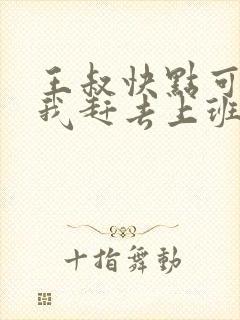 王叔快點可
我赶去上班
十指舞動